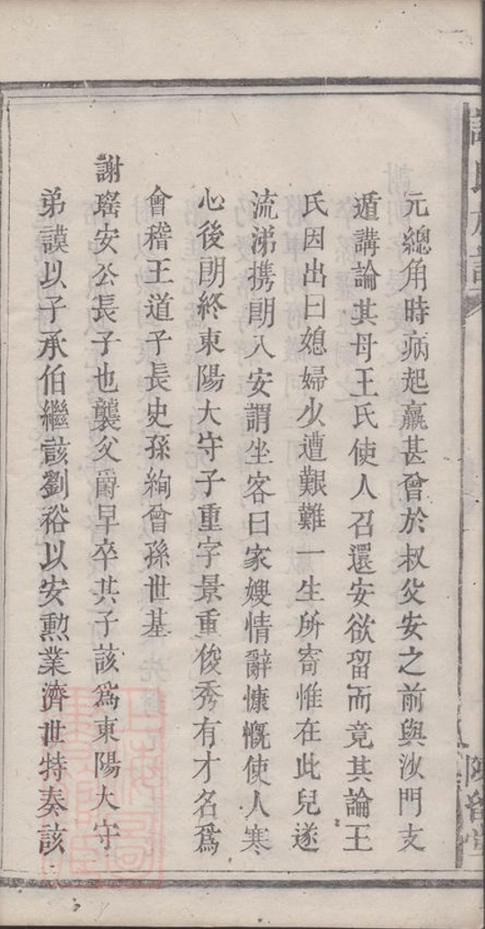 元總角時病起羸甚曾於叔父安之前與沙門支
遁講論其母王氏使人召還安欲留而竟其論王
氏因出曰媳婦少遭艱難一生所寄惟在此兒遂
流涕携朗入安謂坐客曰家嫂情辭慷慨使人寒
心後朗終東陽大守子重字景重俊秀有才名爲
會稽王道子長史孫絢曾孫世基
謝瑤安公長子也襲父爵早卒其子該爲東陽大守
弟謨以子承伯繼該劉裕以安勲業濟世特奏該